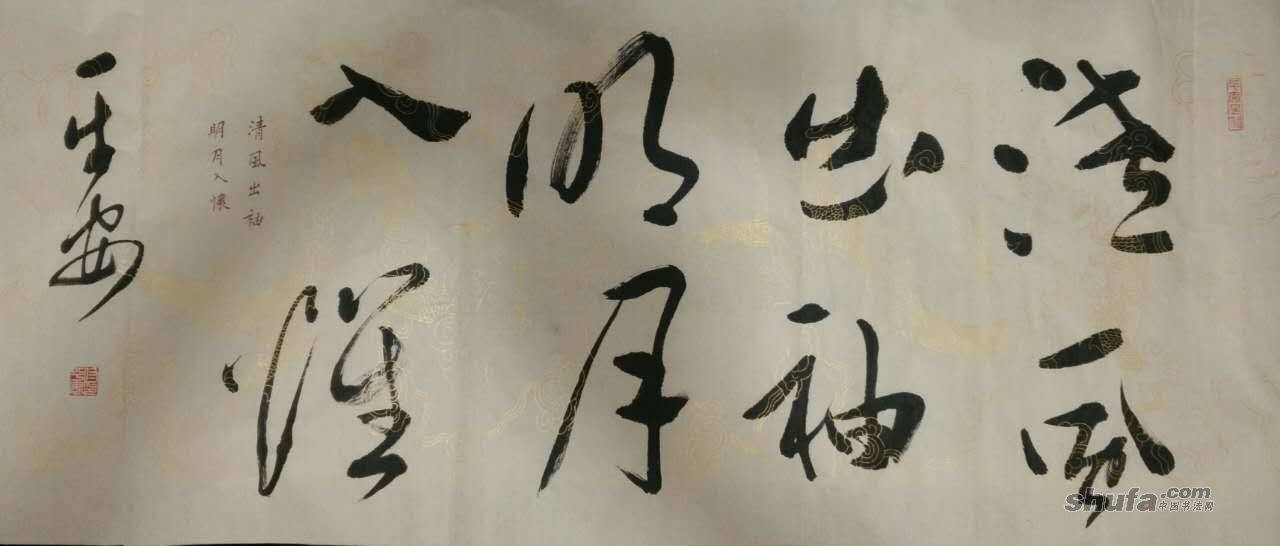 清风
出袖
明月
入懷
清風出袖
明月入懷
一生安
shufa.com
中国书法网